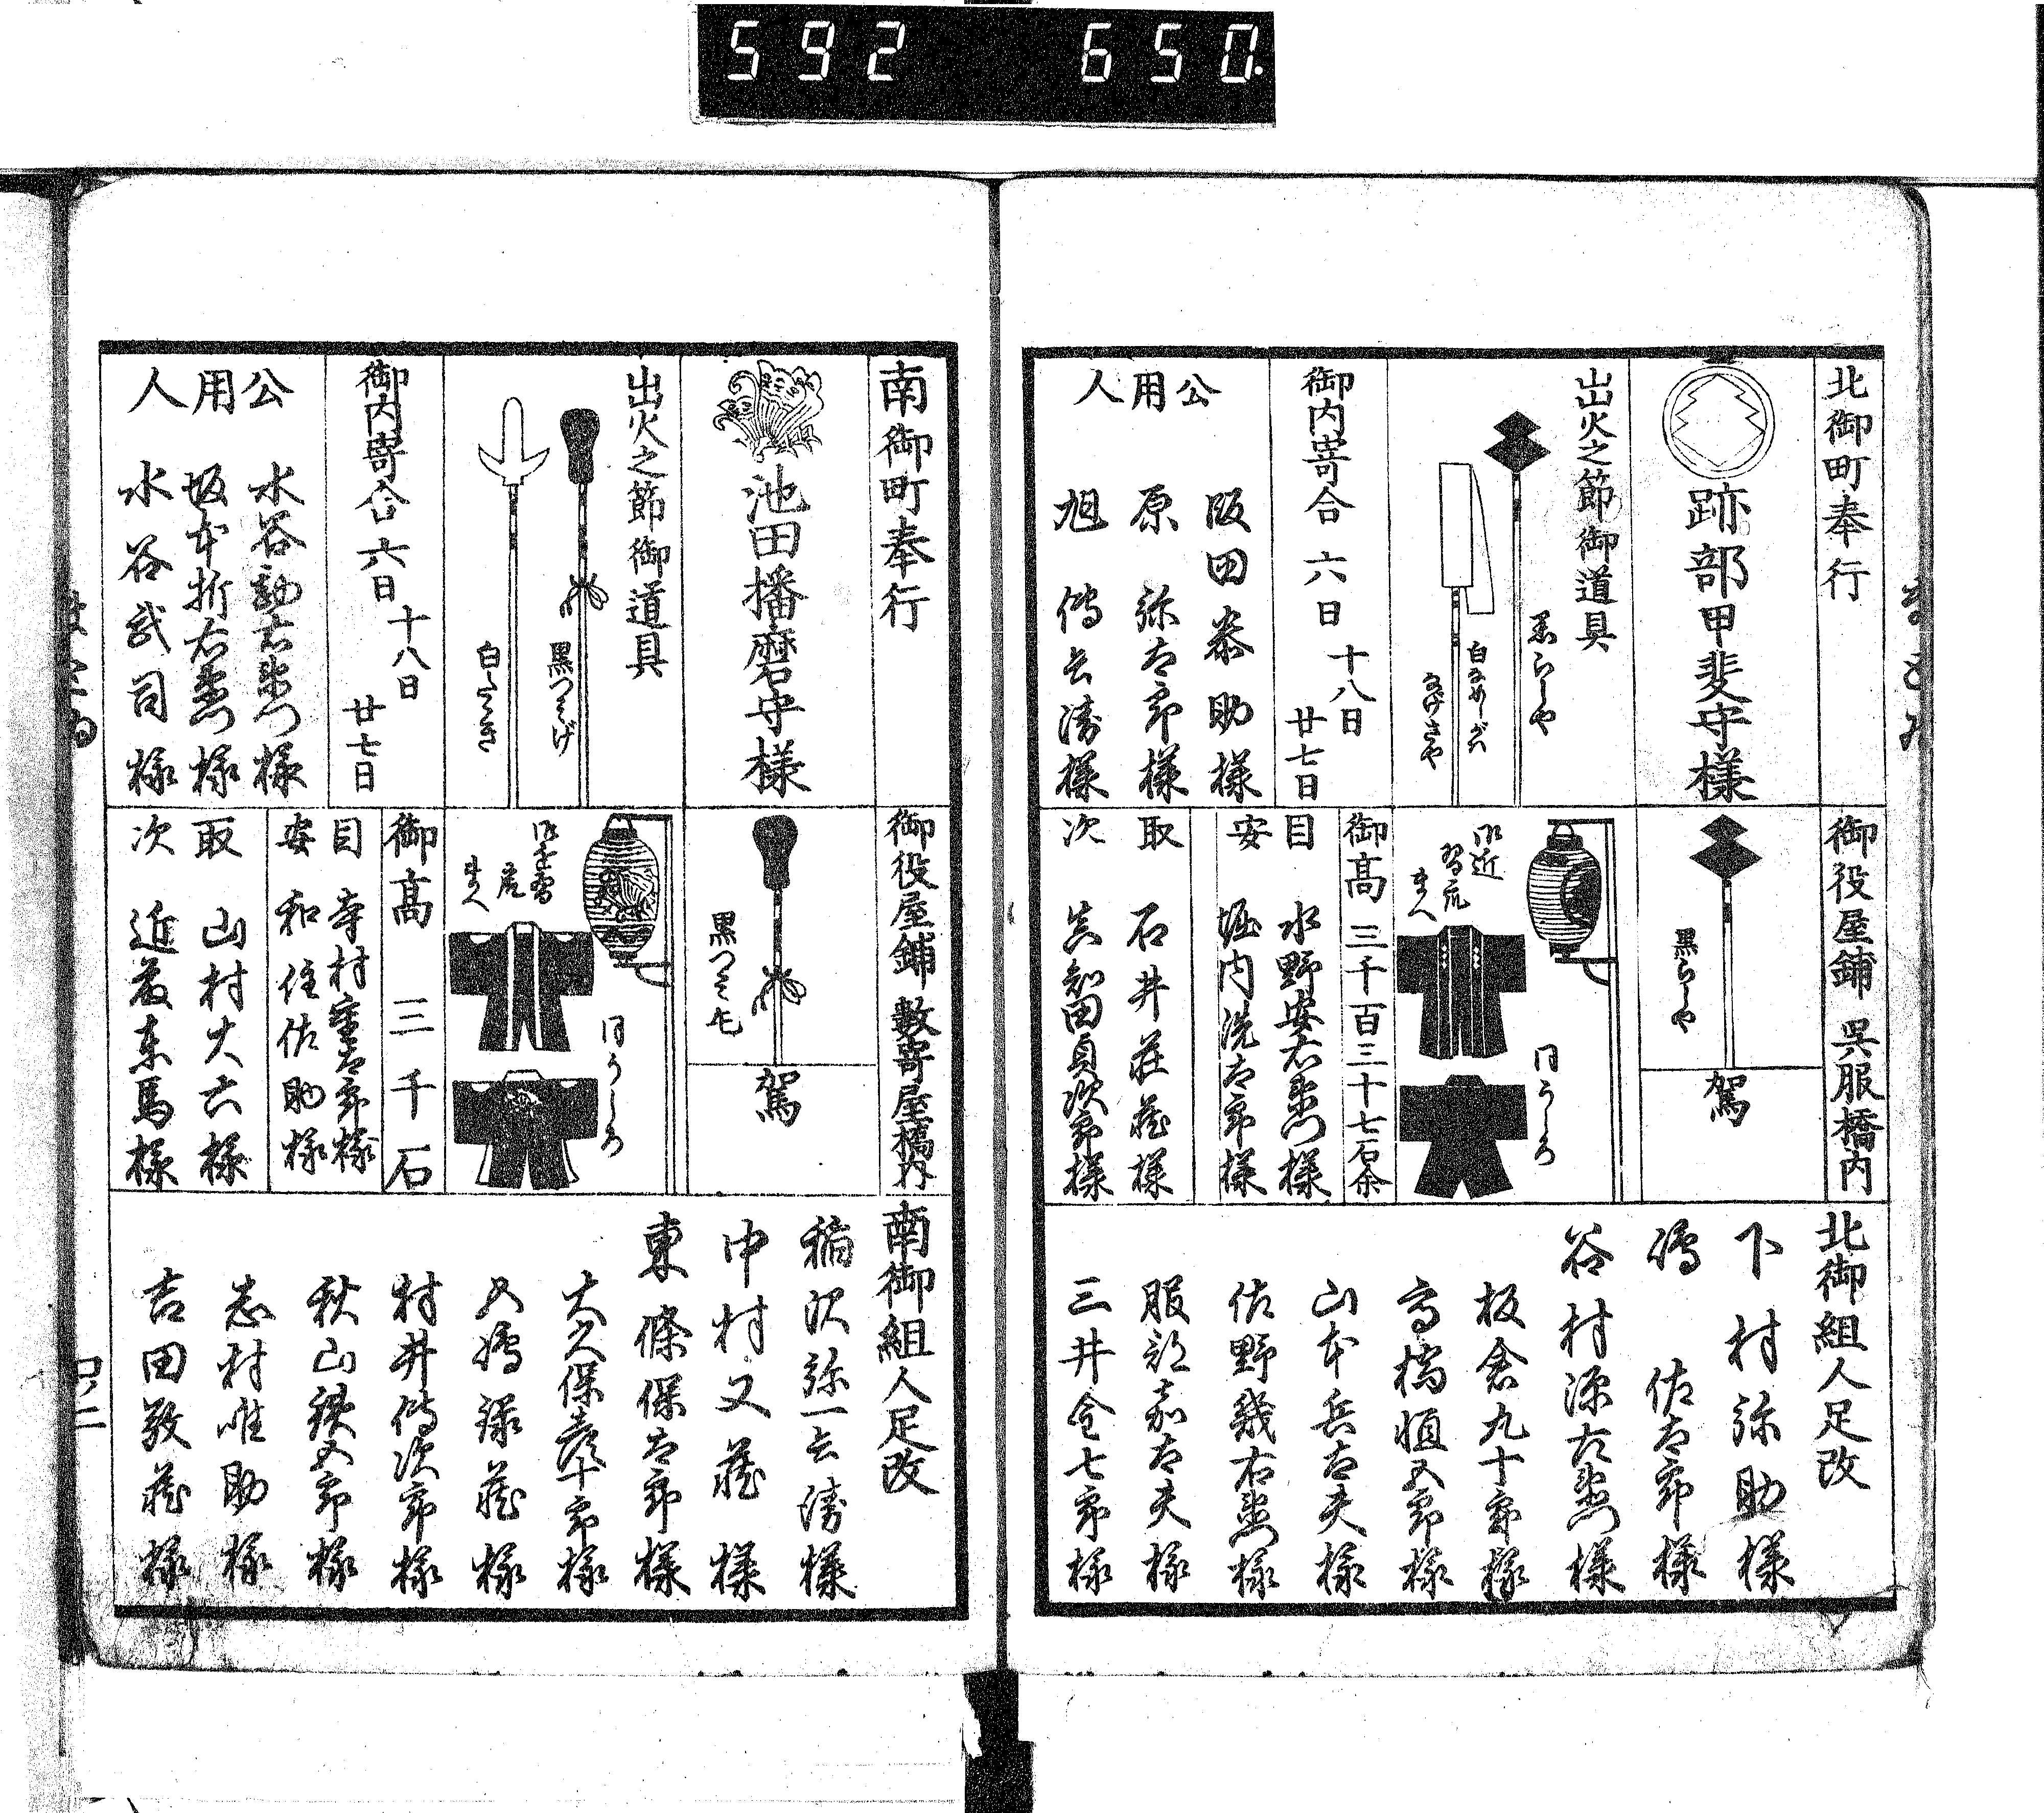 592 650.
北御町奉行
跡部甲斐守様
出火之節御道具
黒らしや
白なめしがハ
なげさや
御内寄合 六日 十八日 廿七日
公用人
阪田泰助様
原弥太郎様
旭傳兵衛様
御役屋鋪 呉服橋内
黒らしや
駕
御近習羽
まへ
同うしろ
御高 三千百三十七石余
目安
水野安右衛門様
堀内洗太郎様
取次
石井荘蔵様
真知田貞次郎様
北御組人足改
下村弥助様
嶋佐太郎様
谷村源右衛門様
板倉九十郎様
高橋恒五郎様
山本兵太夫様
佐野幾右衛門様
服部嘉太夫様
三井仓七郎様
南御町奉行
池田播磨守様
出火之節御道具
黒つミげ
白たゝき
御内寄合 六日 十八日 廿七日
公用人
水谷勘右衛門様
坂本折右衛門様
水谷武司様
御役屋鋪 数寄屋橋内
黒つミ毛
駕
まへ
同うしろ
御高 三千石
目安
寺村重太郎様
和住佐助様
取次
山村大六様
近藤東馬様
南御組人足改
稲沢弥一兵衛様
中村又蔵様
東條保太郎様
大久保喜十郎様
五嶋録蔵様
村井傳次郎様
秋山鉄五郎様
志村唯助様
吉田敬蔵様